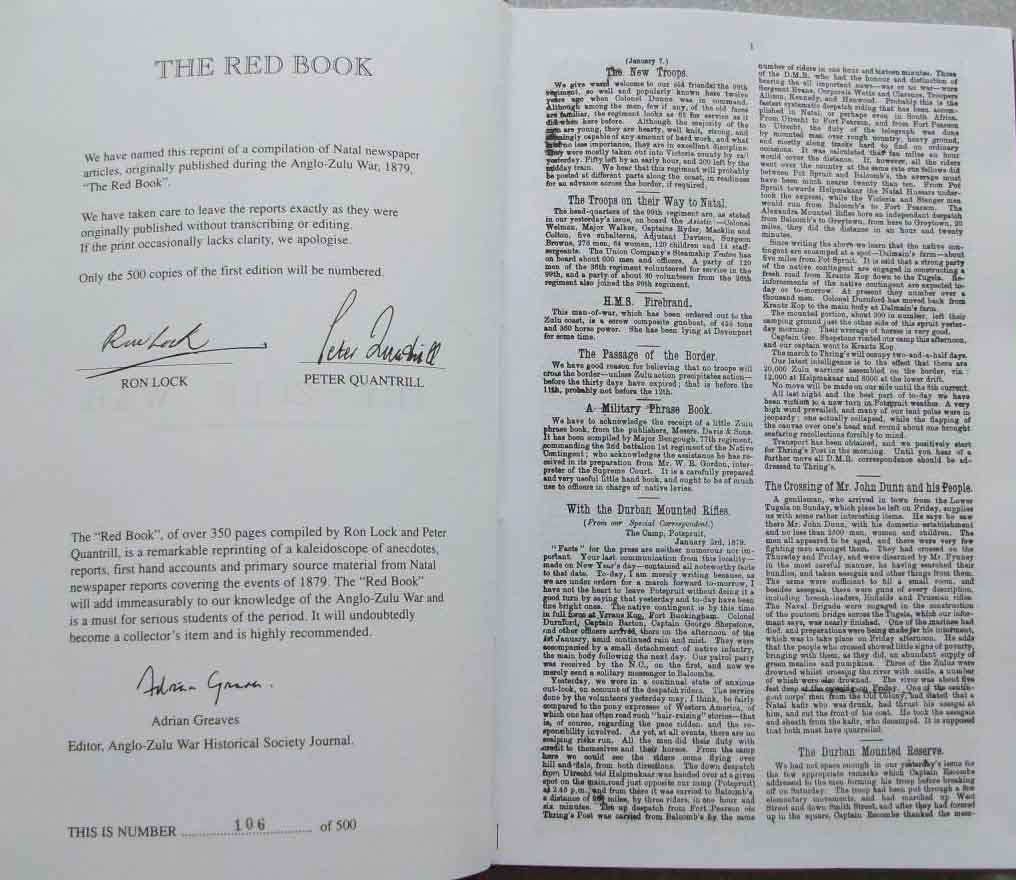 THE RED BOOK
We have named this reprint of a compilation of Natal newspaper
articles, originally published during the Anglo-Zulu War, 1879,
"The Red Book".
We have taken care to leave the reports exactly as they were
originally published without transcribing or editing.
If the print occasionally lacks clarity, we apologise.
Only the 500 copies of the first edition will be numbered.
Ron Lock
Peter Quantrill
RON LOCK
PETER QUANTRILL
The "Red Book", of over 350 pages compiled by Ron Lock and Peter
Quantrill, is a remarkable reprinting of a kaleidoscope of anecdotes,
reports, first hand accounts and primary source material from Natal
newspaper reports covering the events of 1879. The "Red Book"
will add immeasurably to our knowledge of the Anglo-Zulu War and
is a must for serious students of the period. It will undoubtedly
become a collector's item and is highly recommended.
Adrian Greaves.
Adrian Greaves
Editor, Anglo-Zulu War Historical Society Journal.
THIS IS NUMBER ........106........ of 500
1
(January 7.)
The New Troops.
We give warm welcome to our old friends the 99th
regiment, so well and popularly known here twelve
years ago when Colonel Dunne was in command.
Although among the men, few if any, of the old faces
are familiar, the regiment looks as fit for service as it
did when here before. Although the majority of the
men are young, they are hearty, well knit, strong, and
seemingly capable of any amount of hard work, and what
is no less importance, they are in excellent discipline.
They were mostly taken out into Victoria county by rail
yesterday. Fifty left by an early hour, and 200 left by the
midday train. We hear that this regiment will probably
be posted at different parts along the coast, in readiness
for an advance across the border, if required.
The Troops on their Way to Natal.
The head-quarters of the 99th regiment are, as stated
in our yesterday's issue, on board the Asiatic:—Colonel
Welman, Major Walker, Captains Ryder, Macklin and
Colton, five subalterns, Adjutant Davison, Surgeon
Browne, 276 men, 64 women, 120 children and 14 staff-
sergeants. The Union Company's Steamship Teuton has
on board about 600 men and officers. A party of 120
men of the 36th regiment volunteered for service in the
99th, and a party of about 30 volunteers from the 26th
regiment also joined the 99th regiment.
H.M.S. Firebrand.
This man-of-war, which has been ordered out to the
Zulu coast, is a screw composite gunboat, of 455 tons
and 360 horse power. She has been lying at Devonport
for some time.
The Passage of the Border.
We have good reason for believing that no troops will
cross the border—unless Zulu action precipitates action—
before the thirty days have expired; that is before the
11th, probably not before the 12th.
A Military Phrase Book.
We have to acknowledge the receipt of a little Zulu
phrase book, from the publishers, Messrs. Davis & Sons.
It has been compiled by Major Bengough, 77th regiment,
commanding the 2nd battalion 1st regiment of the Native
Contingent; who acknowledges the assistance he has re-
ceived in its preparation from Mr. W. R. Gordon, inter-
preter of the Supreme Court. It is a carefully prepared
and very useful little hand book, and ought to be of much
use to officers in charge of native levies.
With the Durban Mounted Rifles.
(From our Special Correspondent.)
The Camp, Potspruit,
January 3rd, 1879.
"Facts" for the press are neither numerous nor im-
portant. Your last communication from this locality—
made on New Year's day—contained all noteworthy facts
to that date. To-day, I am merely writing because, as
we are under orders for a march forward to-morrow, I
have not the heart to leave Potspruit without doing it a
good turn by saying that yesterday and to-day have been
fine bright ones. The native contingent is by this time
in full force at Krantz Kop, Fort Buckingham. Colonel
Durnford, Captain Barton, Captain George Shepstone,
and other officers arrived, there on the afternoon of the
1st January, amid continued rain and mist. They were
accompanied by a small detachment of native infantry,
the main body following the next day. Our patrol party
was received by the N.C., on the first, and now we
merely send a solitary messenger to Balcombs.
Yesterday, we were in a continual state of anxious
out-look, on account of the despatch riders. The service
done by the volunteers yesterday may, I think, be fairly
compared to the pony expresses of Western America, of
which one has often read such "hair-raising" stories—that
is, of course, regarding the pace ridden and the re-
sponsibility involved. As yet, at all events, there are no
scalping risks run. All the men did their duty with
credit to themselves and their horses. From the camp
here we could see the riders come flying over
hill and dale, from both directions. The down despatch
from Utrecht via Helpmakaar was handed over at a given
spot on the main road just opposite our camp (Potspruit)
at 2.45 p.m. and from there it was carried to Balcomb's,
a distance of miles, by three riders, in one hour and
six minutes. The up despatch from Fort Pearson via
Thring's Post was carried from Balcomb's by the same
number of riders in one hour and sixteen minutes. Those
of the D.M.R. who had the honour and distinction of
bearing the all important news—war or no war—were
Sergeant Evans, Corporals Watts and Clarence, Troopers
Allison, Kennedy, and Henwood. Probably this is the
fastest systematic despatch riding that has been accom-
plished in Natal, or perhaps even in South Africa.
From Utrecht to Fort Pearson, and from Fort Pearson
to Utrecht, the duty of the telegraph was done
by mounted men over rough country, heavy ground,
and mostly along tracks hard to find on ordinary
occasions. It was calculated that ten miles an hour
would cover the distance. If, however, all the riders
went over the country at the same rate our fellows did
between Pot Spruit and Balcomb's, the average must
have been much nearer twenty than ten. From Pot
Spruit towards Helpmakaar the Natal Hussars under-
took the express, while the Victoria and Stanger men
would run from Balcomb's to Fort Pearson. The
Alexandra Mounted Rifles bore an independent despatch
from Balcomb's to Greytown, from here to Greytown, 20
miles, they did the distance in an hour and twenty
minutes.
Since writing the above we learn that the native con-
tingent are encamped at a spot—Dalmain's farm—about
five miles from Pot Spruit. It is said that a strong party
of the native contingent are engaged in constructing a
fresh road from Krantz Kop down to the Tugela. Re-
inforcements of the native contingent are expected to-
day or to-morrow. At present they number over a
thousand men. Colonel Durnford has moved back from
Krantz Kop to the main body at Dalmain's farm.
The mounted portion, about 300 in number, left their
camping ground just the other side of this spruit yester-
day morning. Their average of horses is very good.
Captain Geo. Shepstone visited our camp this afternoon,
and our captain went to Krantz Kop.
The march to Thring's will occupy two-and-a-half days.
Our latest intelligence is to the effect that there are
20,000 Zulu warriors assembled on the border, viz.:
12,000 at Helpmakaar and 8000 at the lower drift.
No move will be made on our side until the 8th current.
All last night and the best part of to-day we have
been victims to a new turn in Potspruit weather. A very
high wind prevailed, and many of our tent poles were in
jeopardy; one actually collapsed, while the flapping of
the canvas over one's head and round about one brought
seafaring recollections forcibly to mind.
Transport has been obtained, and we positively start
for Thring's Post in the morning. Until you hear of a
further move all D.M.R. correspondence should be ad-
dressed to Thring's.
The Crossing of Mr. John Dunn and his People.
A gentleman, who arrived in town from the Lower
Tugela on Sunday, which place he left on Friday, supplies
us with some rather interesting items. He says he saw
there Mr. John Dunn, with his domestic establishment
and no less than 2500 men, women and children. The
men all appeared to be aged, and there were very few
fighting men amongst them. They had crossed on the
Thursday and Friday, and were disarmed by Mr. Fynney
in the most careful manner, he having searched their
bundles, and taken assegais and other things from them.
The arms were sufficient to fill a small room, and
besides assegais, there were guns of every description,
including breech-loaders, Enfields and Prussian rifles.
The Naval Brigade were engaged in the construction
of the pontoon bridge across the Tugela, which our infor-
mant says, was nearly finished. One of the marines had
died, and preparations were being made for his interment,
which was to take place on Friday afternoon. He adds
that the people who crossed showed little signs of poverty,
bringing with them, as they did, an abundant supply of
green mealies and pumpkins. Three of the Zulus were
drowned whilst crossing the river with cattle, a number
of which were also drowned. The river was about five
feet deep at the crossing on Friday. One of the contin-
gent corps' men from the Old Colony, had stated that a
Natal kafir who was drunk, had thrust his assegai at
him, and cut the front of his coat. He took the assegais
and sheath from the kafir, who decamped. It is supposed
that both must have quarrelled.
The Durban Mounted Reserve.
We had not space enough in our yesterday's issue for
the few appropriate remarks which Captain Escombe
addressed to the men forming his troop before breaking
off on Saturday. The troop had been put through a few
elementary movements, and had marched up West
Street and down Smith Street, and after they had formed
up in the square, Captain Escombe thanked the mem-